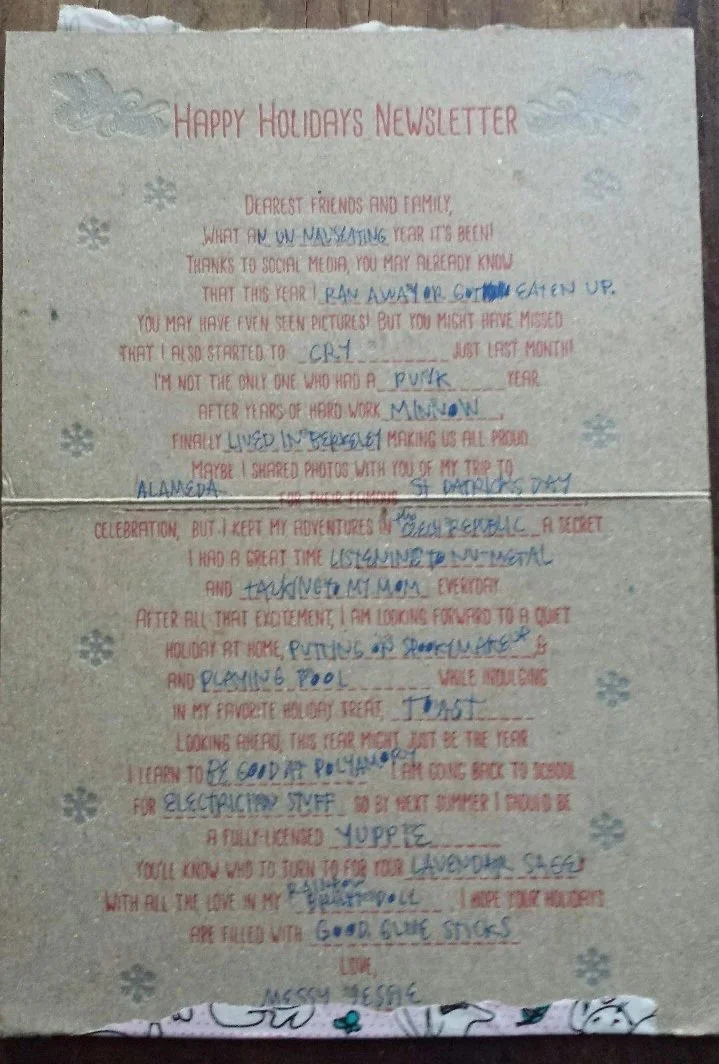 HAPPY HOLIDAYS NEWSLETTER
DEAREST FRIENDS AND FAMILY,
WHAT AN UN-NAUSEATING YEAR IT'S BEEN!
THANKS TO SOCIAL MEDIA, YOU MAY ALREADY KNOW
THAT THIS YEAR I RAN AWAY OR GOT EATEN UP.
YOU MAY HAVE EVEN SEEN PICTURES! BUT YOU MIGHT HAVE MISSED
THAT I ALSO STARTED TO CRY JUST LAST MONTH!
I'M NOT THE ONLY ONE WHO HAD A PUNK YEAR.
AFTER YEARS OF HARD WORK MINNOW,
FINALLY LIVED IN BERKELEY MAKING US ALL PROUD.
MAYBE I SHARED PHOTOS WITH YOU OF MY TRIP TO
ALAMEDA FOR THEIR FAMOUS ST PATRICKS DAY
CELEBRATION, BUT I KEPT MY ADVENTURES IN the CZECH REPUBLIC A SECRET.
I HAD A GREAT TIME LISTENING TO NU-METAL
AND TALKING TO MY MOM EVERYDAY.
AFTER ALL THAT EXCITEMENT, I AM LOOKING FORWARD TO A QUIET
HOLIDAY AT HOME, PUTTING ON SPOOKY MAKEUP &
AND PLAYING POOL WHILE INDULGING
IN MY FAVORITE HOLIDAY TREAT, TOAST
LOOKING AHEAD, THIS YEAR MIGHT JUST BE THE YEAR
I LEARN TO BE GOOD AT POLYAMORY. I AM GOING BACK TO SCHOOL
FOR ELECTRICIAN STUFF SO BY NEXT SUMMER I SHOULD BE
A FULLY-LICENSED YUPPIE
YOU'LL KNOW WHO TO TURN TO FOR YOUR LAVENDAIR SAGE!
WITH ALL THE LOVE IN MY RAINBOW I HOPE YOUR HOLIDAYS
ARE FILLED WITH GOOD GLUE STICKS
LOVE,
MESSY JESSIE